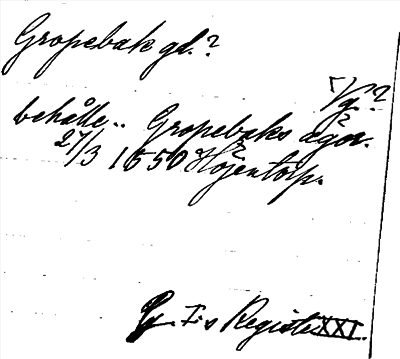 Gropebak gd.?
Vg.?
behålle.. Gropebaks ägor.
27/3 1550 Höjentorp.
G. I:s Register XXI.